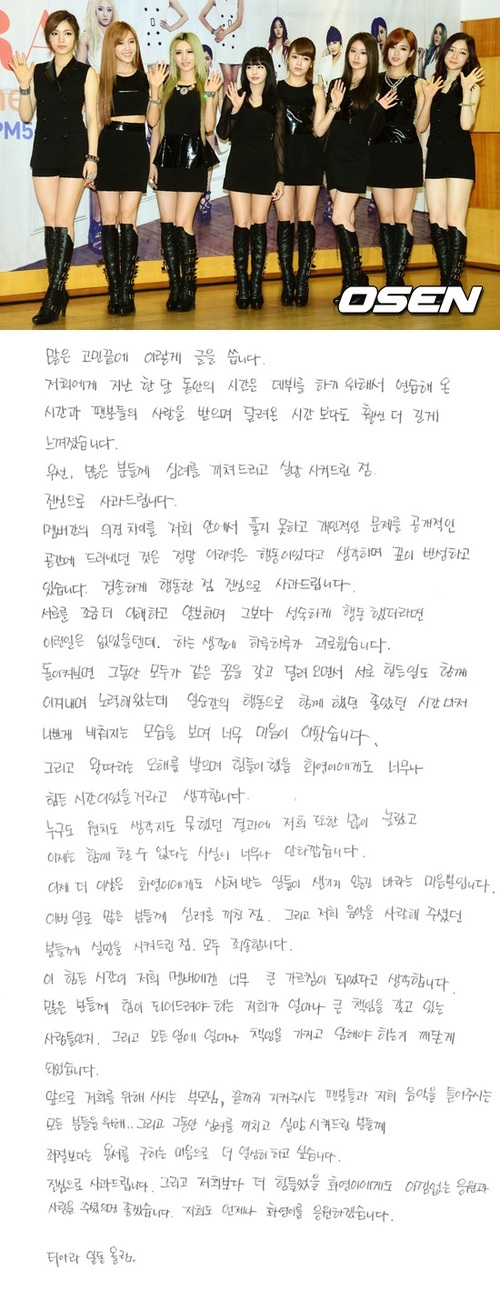 RA
PM5
OSEN
많은 고민끝에 이렇게 글을 씁니다.
저희에게 지난 한 달 동안의 시간은 데뷔를 하기 위해서 연습해 온
시간과 팬분들의 사랑을 받으며 달려온 시간 보다도 훨씬 더 길게
느껴졌습니다.
우선, 많은 분들께 심려를 끼쳐드리고 실망 시켜드린 점.
진심으로 사과드립니다.
멤버간의 의견 차이를 저희 안에서 풀지 못하고 개인적인 문제를 공개적인
공간에 드러냈던 것은 정말 어리석은 행동이었다고 생각하며 깊이 반성하고
있습니다. 경솔하게 행동한 점 진심으로 사과드립니다.
서로를 조금 더 이해하고 양보하며 그보다 성숙하게 행동 했더라면
이런일은 없었을텐데. 하는 생각에 하루하루가 괴로웠습니다.
돌이켜보면 그동안 모두가 같은 꿈을 갖고 달려 오면서 서로 힘든일도 함께
이겨내며 노력해왔는데 일순간의 행동으로 함께 했던 좋았던 시간마저
나쁘게 비춰지는 모습을 보며 너무 마음이 아팠습니다.
그리고 왕따라는 오해를 받으며 힘들어했을 화영이에게도 너무나
힘든 시간이었을거라고 생각합니다.
누구도 원치도 생각지도 못했던 결과에 저희 또한 많이 놀랐고
이제는 함께 할 수 없다는 사실이 너무나 안타깝습니다.
이제 더 이상은 화영이에게도 상처 받는 일들이 생기지 않길 바라는 마음뿐입니다.
이번 일로 많은 분들께 심려를 끼친 점. 그리고 저희 음악을 사랑해 주셨던
분들께 실망을 시켜드린 점. 모두 죄송합니다.
이 힘든 시간이 저희 멤버에겐 너무 큰 가르침이 되었다고 생각합니다.
많은 분들께 힘이 되어드려야 하는 저희가 얼마나 큰 책임을 갖고 있는
사람들인지. 그리고 모든 일에 얼마나 책임을 가지고 임해야 하는지 깨닫게
되었습니다.
앞으로 저희를 위해 사시는 부모님, 끝까지 지켜주시는 팬분들과 저희 음악을 들어주시는
모든 분들을 위해.. 그리고 그동안 심려를 끼치고 실망 시켜드린 분들께
좌절보다는 용서를 구하는 마음으로 더 열심히 하고 싶습니다.
진심으로 사과드립니다. 그리고 저희보다 더 힘들었을 화영이에게도 아낌없는 응원과
사랑을 주셨으면 좋겠습니다. 저희도 언제나 화영이를 응원하겠습니다.
티아라 일동 올림.